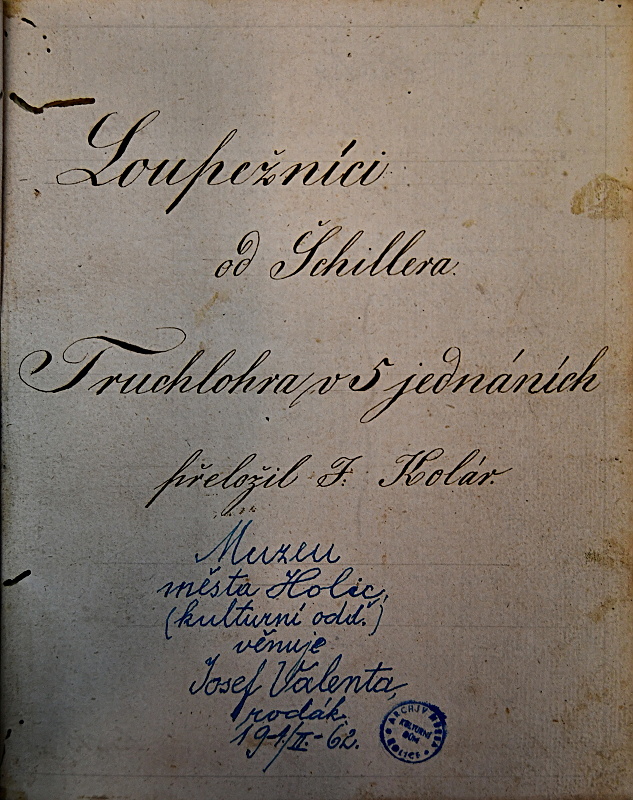 Loupežníci
od Schillera.
Truchlohra v 5 jednáních
přeložil J. Kolár.
Muzeu
města Holic,
(kulturní odd.)
věnuje
Josef Valenta,
rodák.
19-1/II.-62.
ARCHIV MĚSTA
KULTURNÍ
DŮM
HOLICE